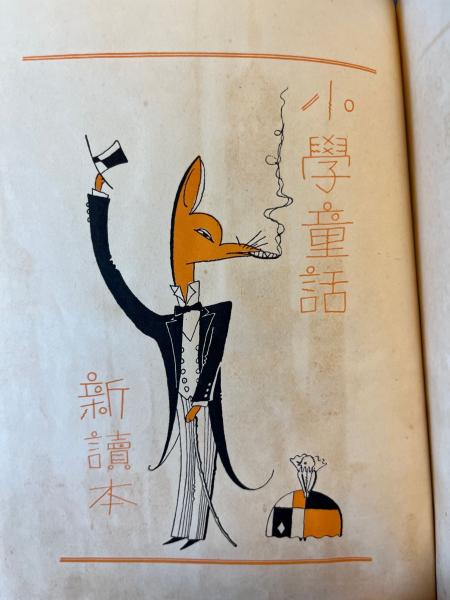 小學童話
新讀本